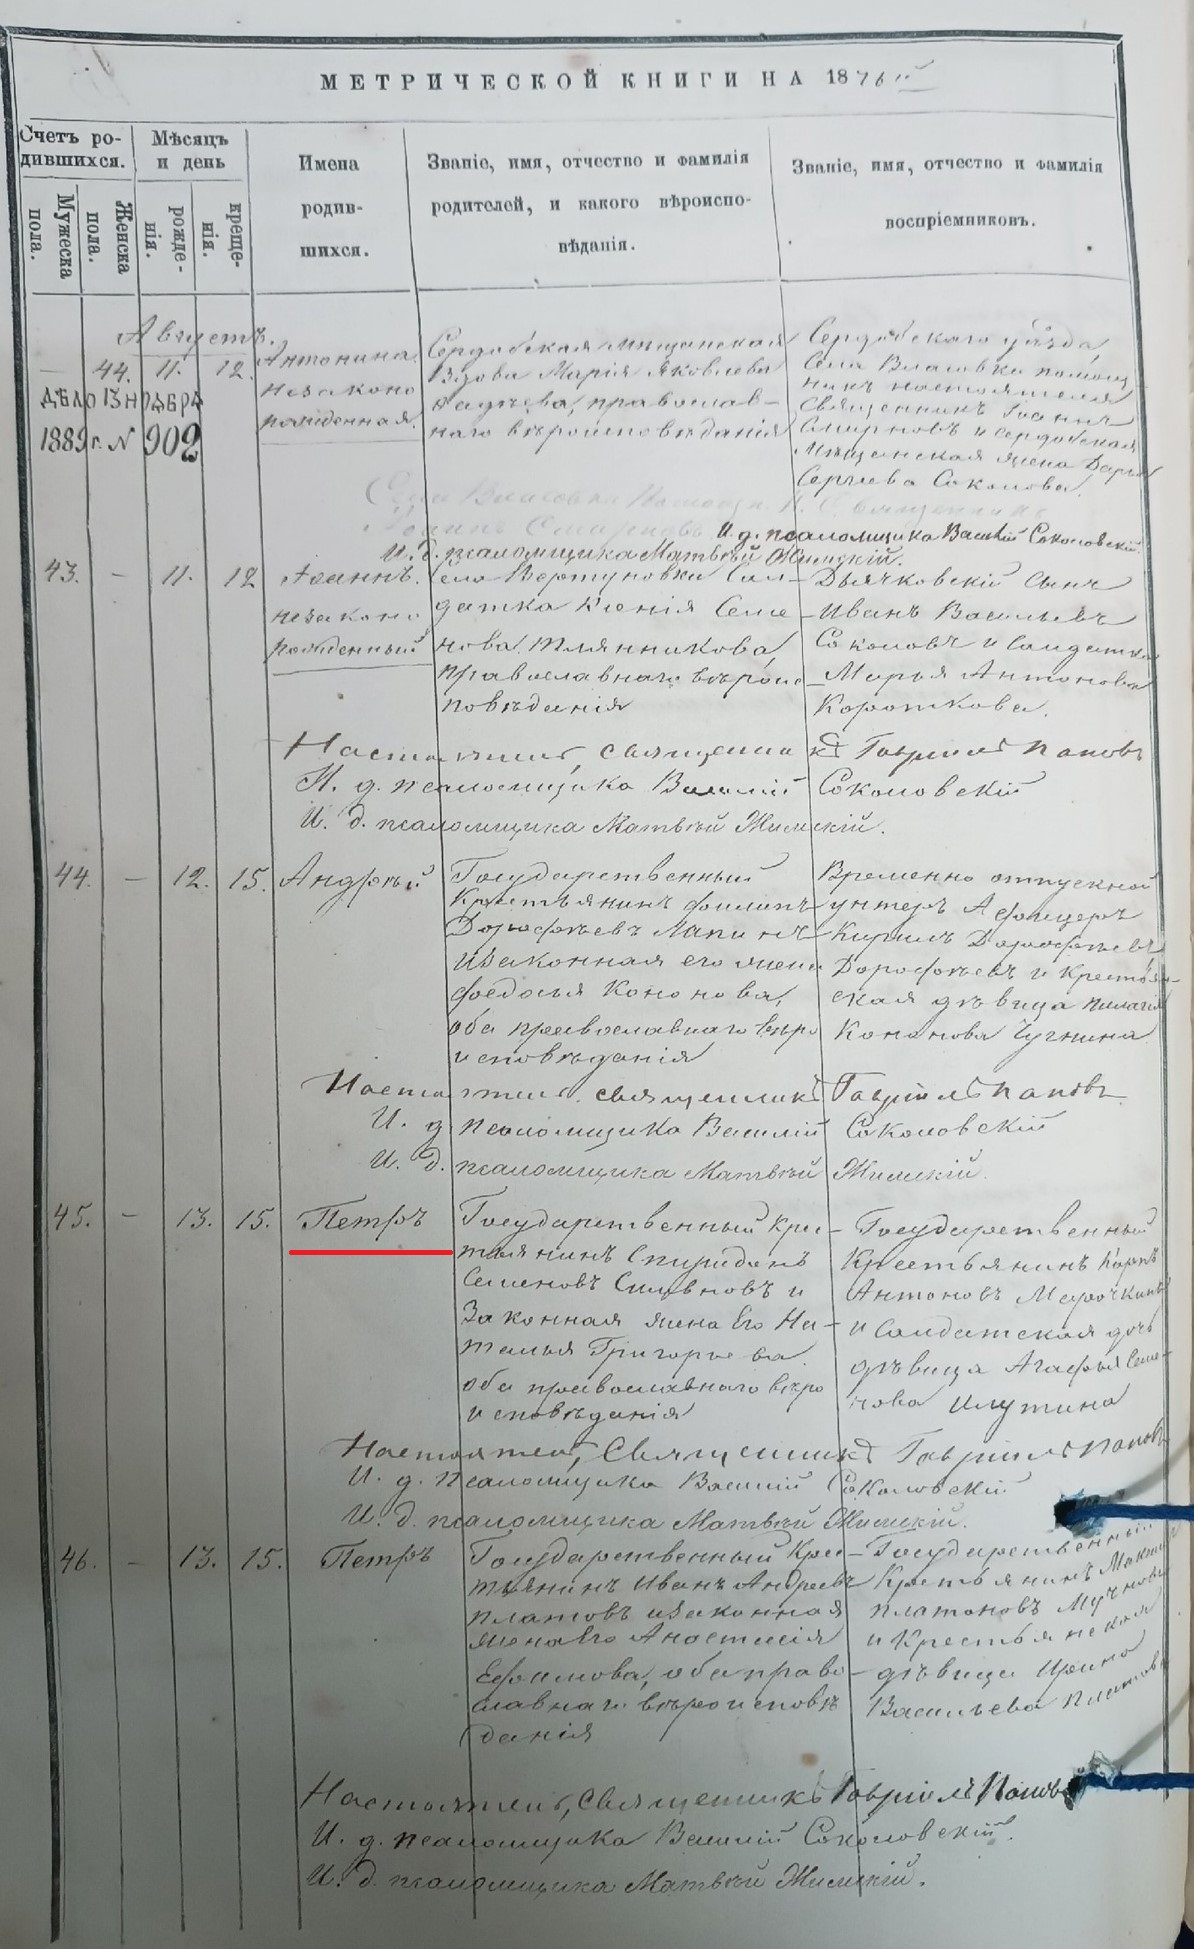 МЕТРИЧЕСКОЙ КНИГИ НА 1876й
Счетъ ро-
дившихся.
Мужеска
пола.
Женска
пола.
Мѣсяцъ
и день
рожде-
нія.
креще-
нія.
Имена
родив-
шихся.
Званіе, имя, отчество и фамилія
родителей, и какого вѣроиспо-
вѣданія.
Званіе, имя, отчество и фамилія
воспріемниковъ.
Августъ.
44. 11. 12.
ДѢЛО 13 НОЯБРЯ
1889 г. N 902
Антонина
незаконо
рожденная.
Сердобская мѣщанская
вдова Марія Яковлева
православ-
наго вѣроисповѣданія
Сердобскаго уѣзда,
села Власовки помощ
никъ настоятеля
священникъ Іоаннъ
Смирновъ и сердобская
мѣщанская жена Дарья
Сергѣева Соколова.
И. д. псаломщика Василій Соколовскій.
И. д. псаломщика Матвѣй Жимскій.
43. - 11. 12
Іоаннъ.
незаконо
рожденный
Села Вертуновки Сол-
датка Ксенія Семе
нова
православнаго вѣроис
повѣданія
Дьячковскій сынъ
Иванъ Васильевъ
Соколовъ и солдатка
Марья Антонова
Короткова.
Настоятель, священникъ Гавріилъ Поповъ
И. д. псаломщика Василій Соколовскій
И. д. псаломщика Матвѣй Жимскій.
44. - 12. 15.
Андрей
Государственный
Крестьянинъ Филипъ
Дорофѣевъ Лапинъ
и законная его жена
Феодосья Кононова,
оба православнаго вѣро
исповѣданія
Временно отпускной
унтеръ Афицеръ
Кирилъ Дорофѣевъ
Дорофѣевъ и крестьян-
ская дѣвица Пилагія
Кононова
Настоятель, священникъ Гавріилъ Поповъ
И. д. псаломщика Василій Соколовскій
И. д. псаломщика Матвѣй Жимскій.
45. - 13. 15.
Петръ
Государственный крес-
тьянинъ Спиридонъ
Семеновъ и
законная жена его На-
талья Григорьева
оба православнаго вѣро
исповѣданія
Государственный
Крестьянинъ Карпъ
Антоновъ Марочкинъ
и солдатская дочь
дѣвица Агафья Семе-
нова
Настоятель, Священникъ Гавріилъ Поповъ
И. д. псаломщика Василій Соколовскій
И. д. псаломщика Матвѣй Жимскій.
46. - 13. 15.
Петръ
Государственный Крес-
тьянинъ Иванъ Андреевъ
Платовъ и законная
жена его Анастасія
Ефимова, оба право-
славнаго вѣроисповѣ
данія
Государственный
Крестьянинъ
Платоновъ
и Крестьянская
дѣвица Ирина
Васильева Платова
Настоятель, Священникъ Гавріилъ Поповъ
И. д. псаломщика Василій Соколовскій.
И. д. псаломщика Матвѣй Жимскій.